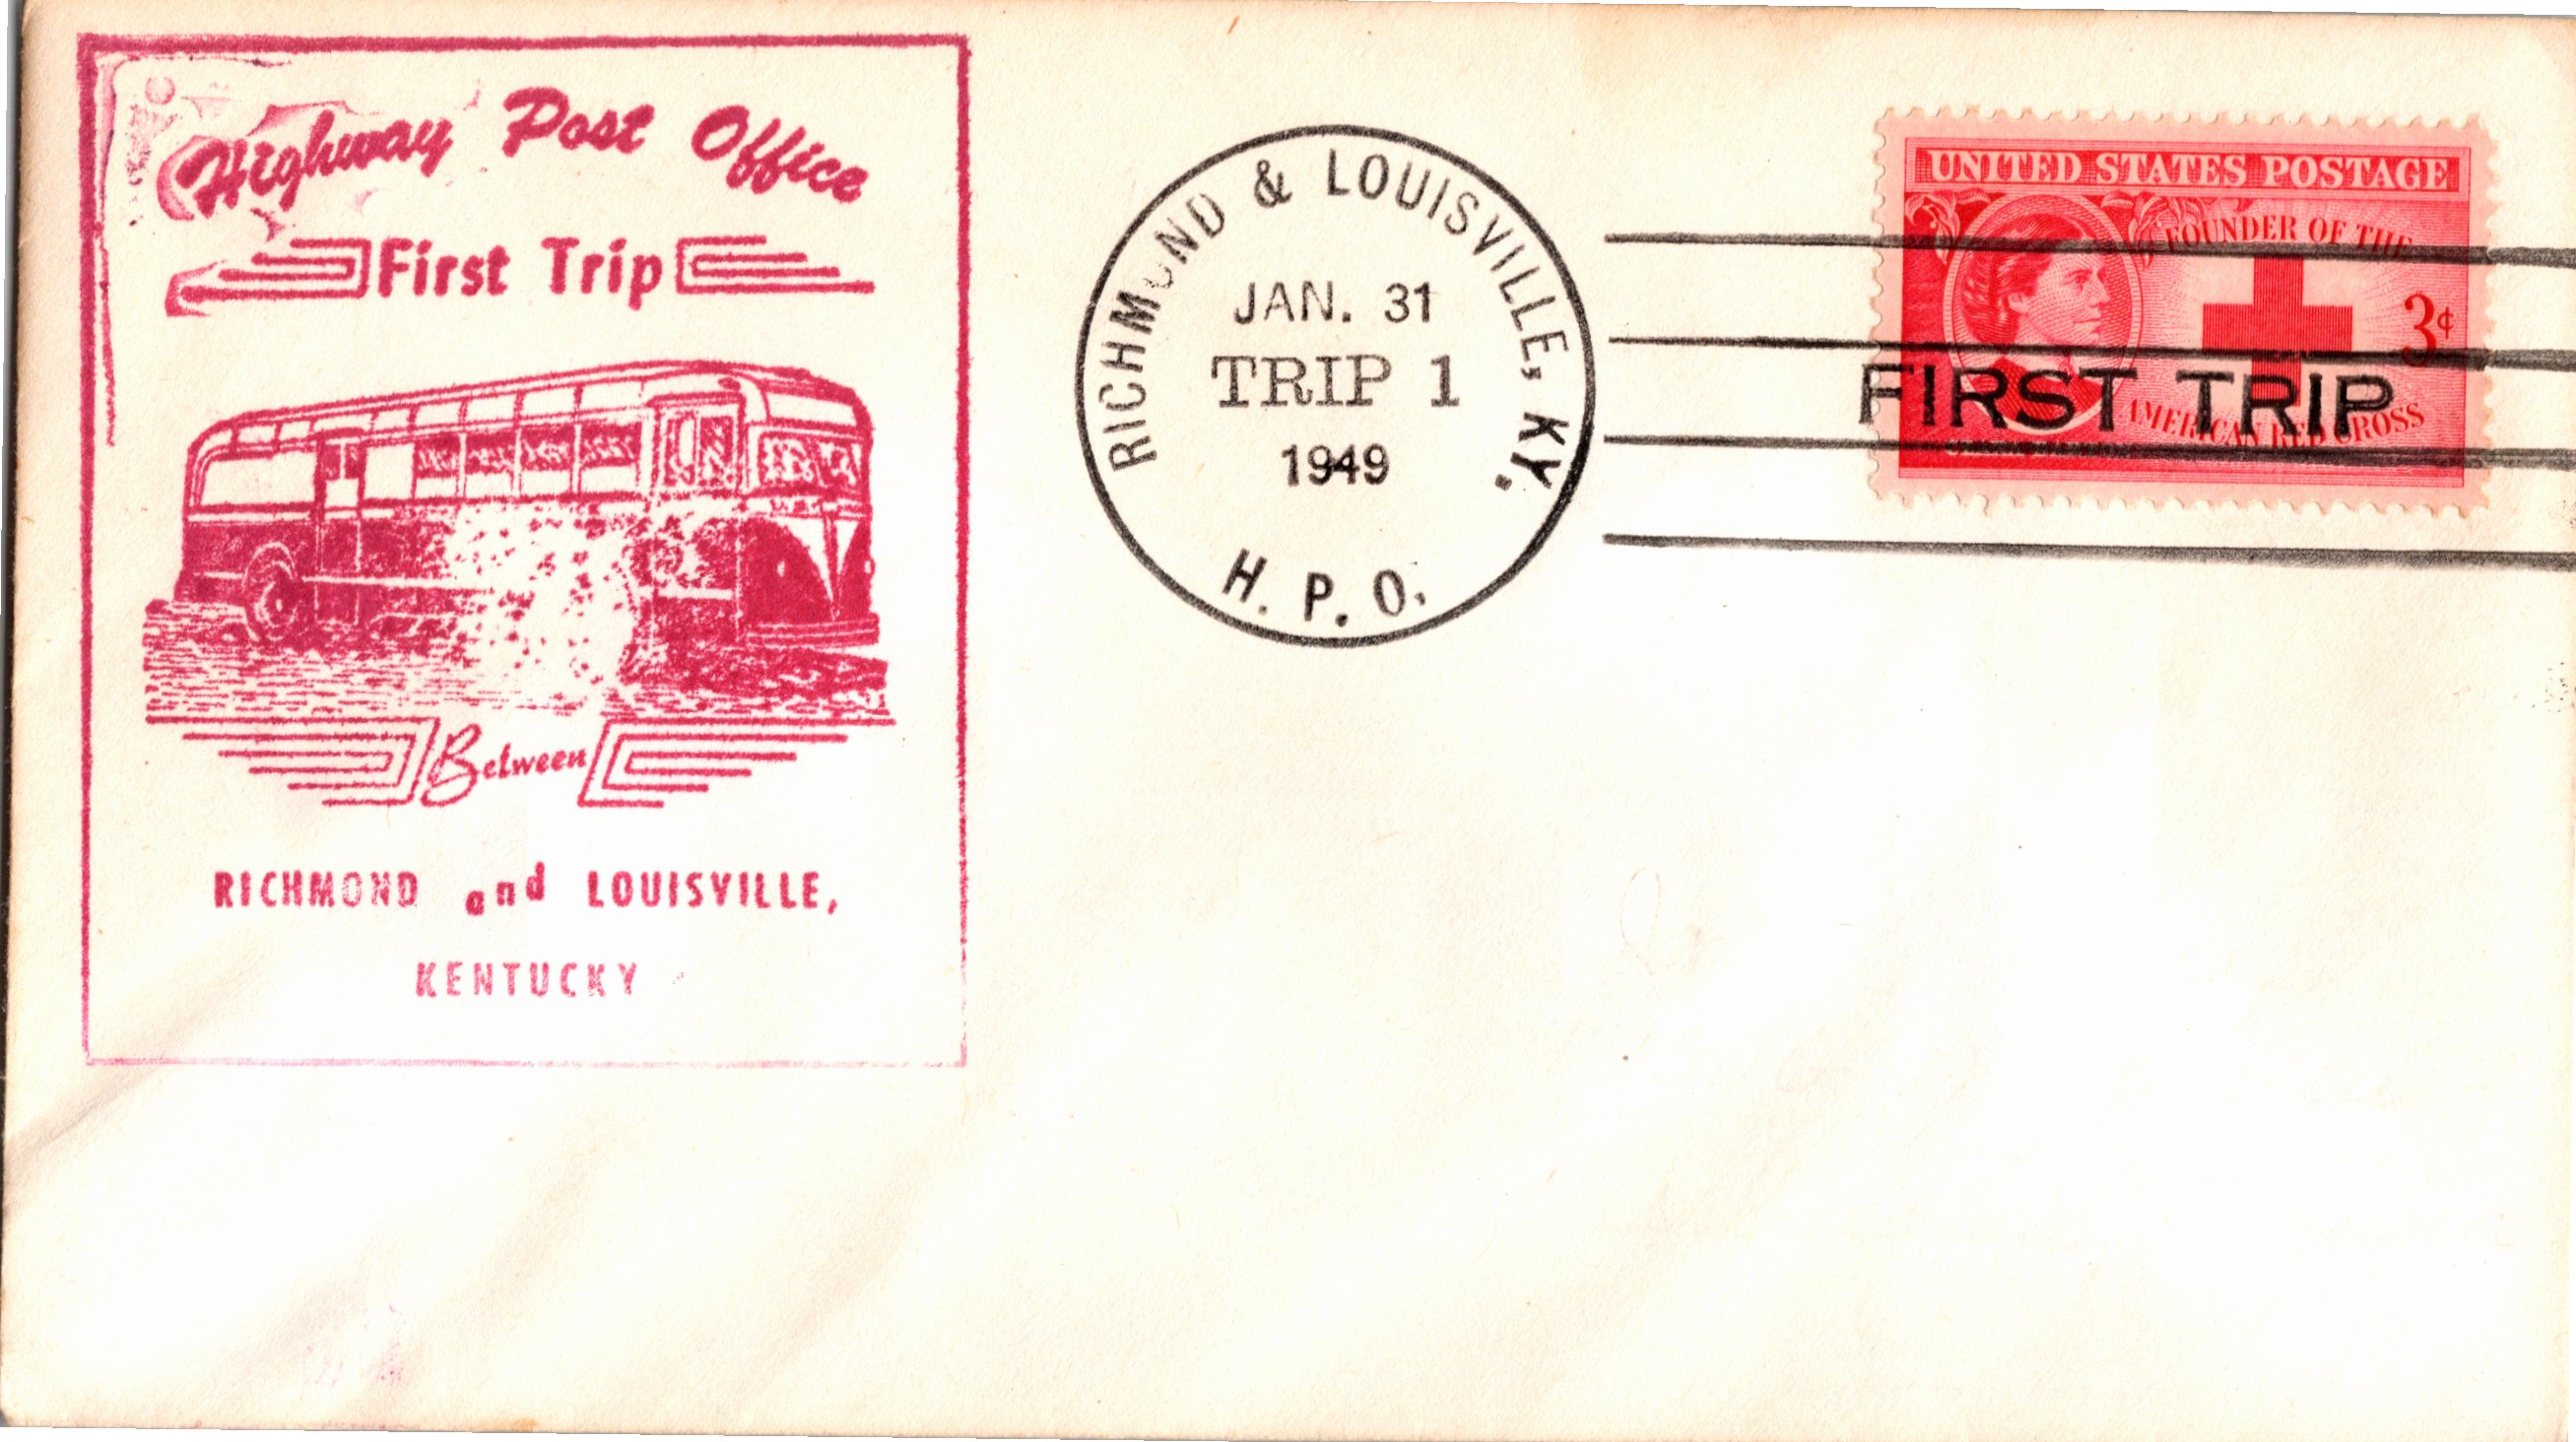 Highway Post Office
First Trip
Between
RICHMOND and LOUISVILLE,
KENTUCKY
RICHMOND & LOUISVILLE, KY.
JAN. 31
TRIP 1
1949
H. P. O.
UNITED STATES POSTAGE
FOUNDER OF THE
3¢
FIRST TRIP
AMERICAN RED CROSS